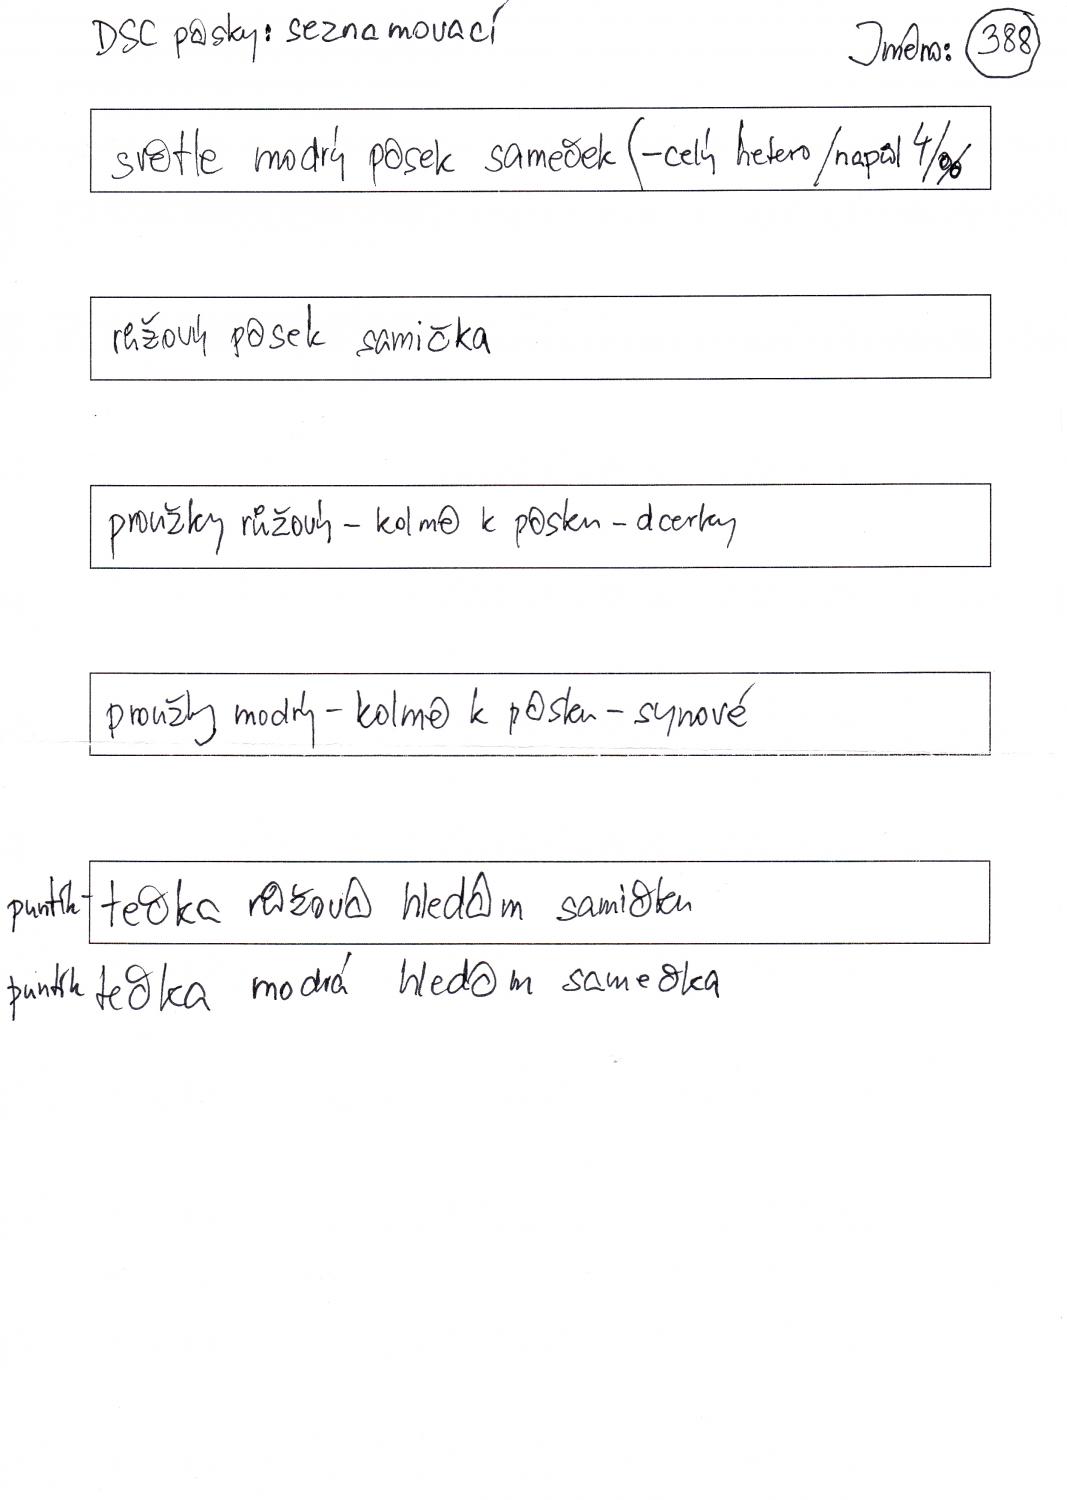 DSC pásky: seznamovací
Jméno: 388
světle modrý pásek sameček (-celý hetero/napůl 4/%
růžový pásek samička
proužky růžový - kolmo k pásku - dcerky
proužky modrý - kolmo k pásku - synové
puntík - tečka růžová hledám samičku
puntík tečka modrá hledám samečka